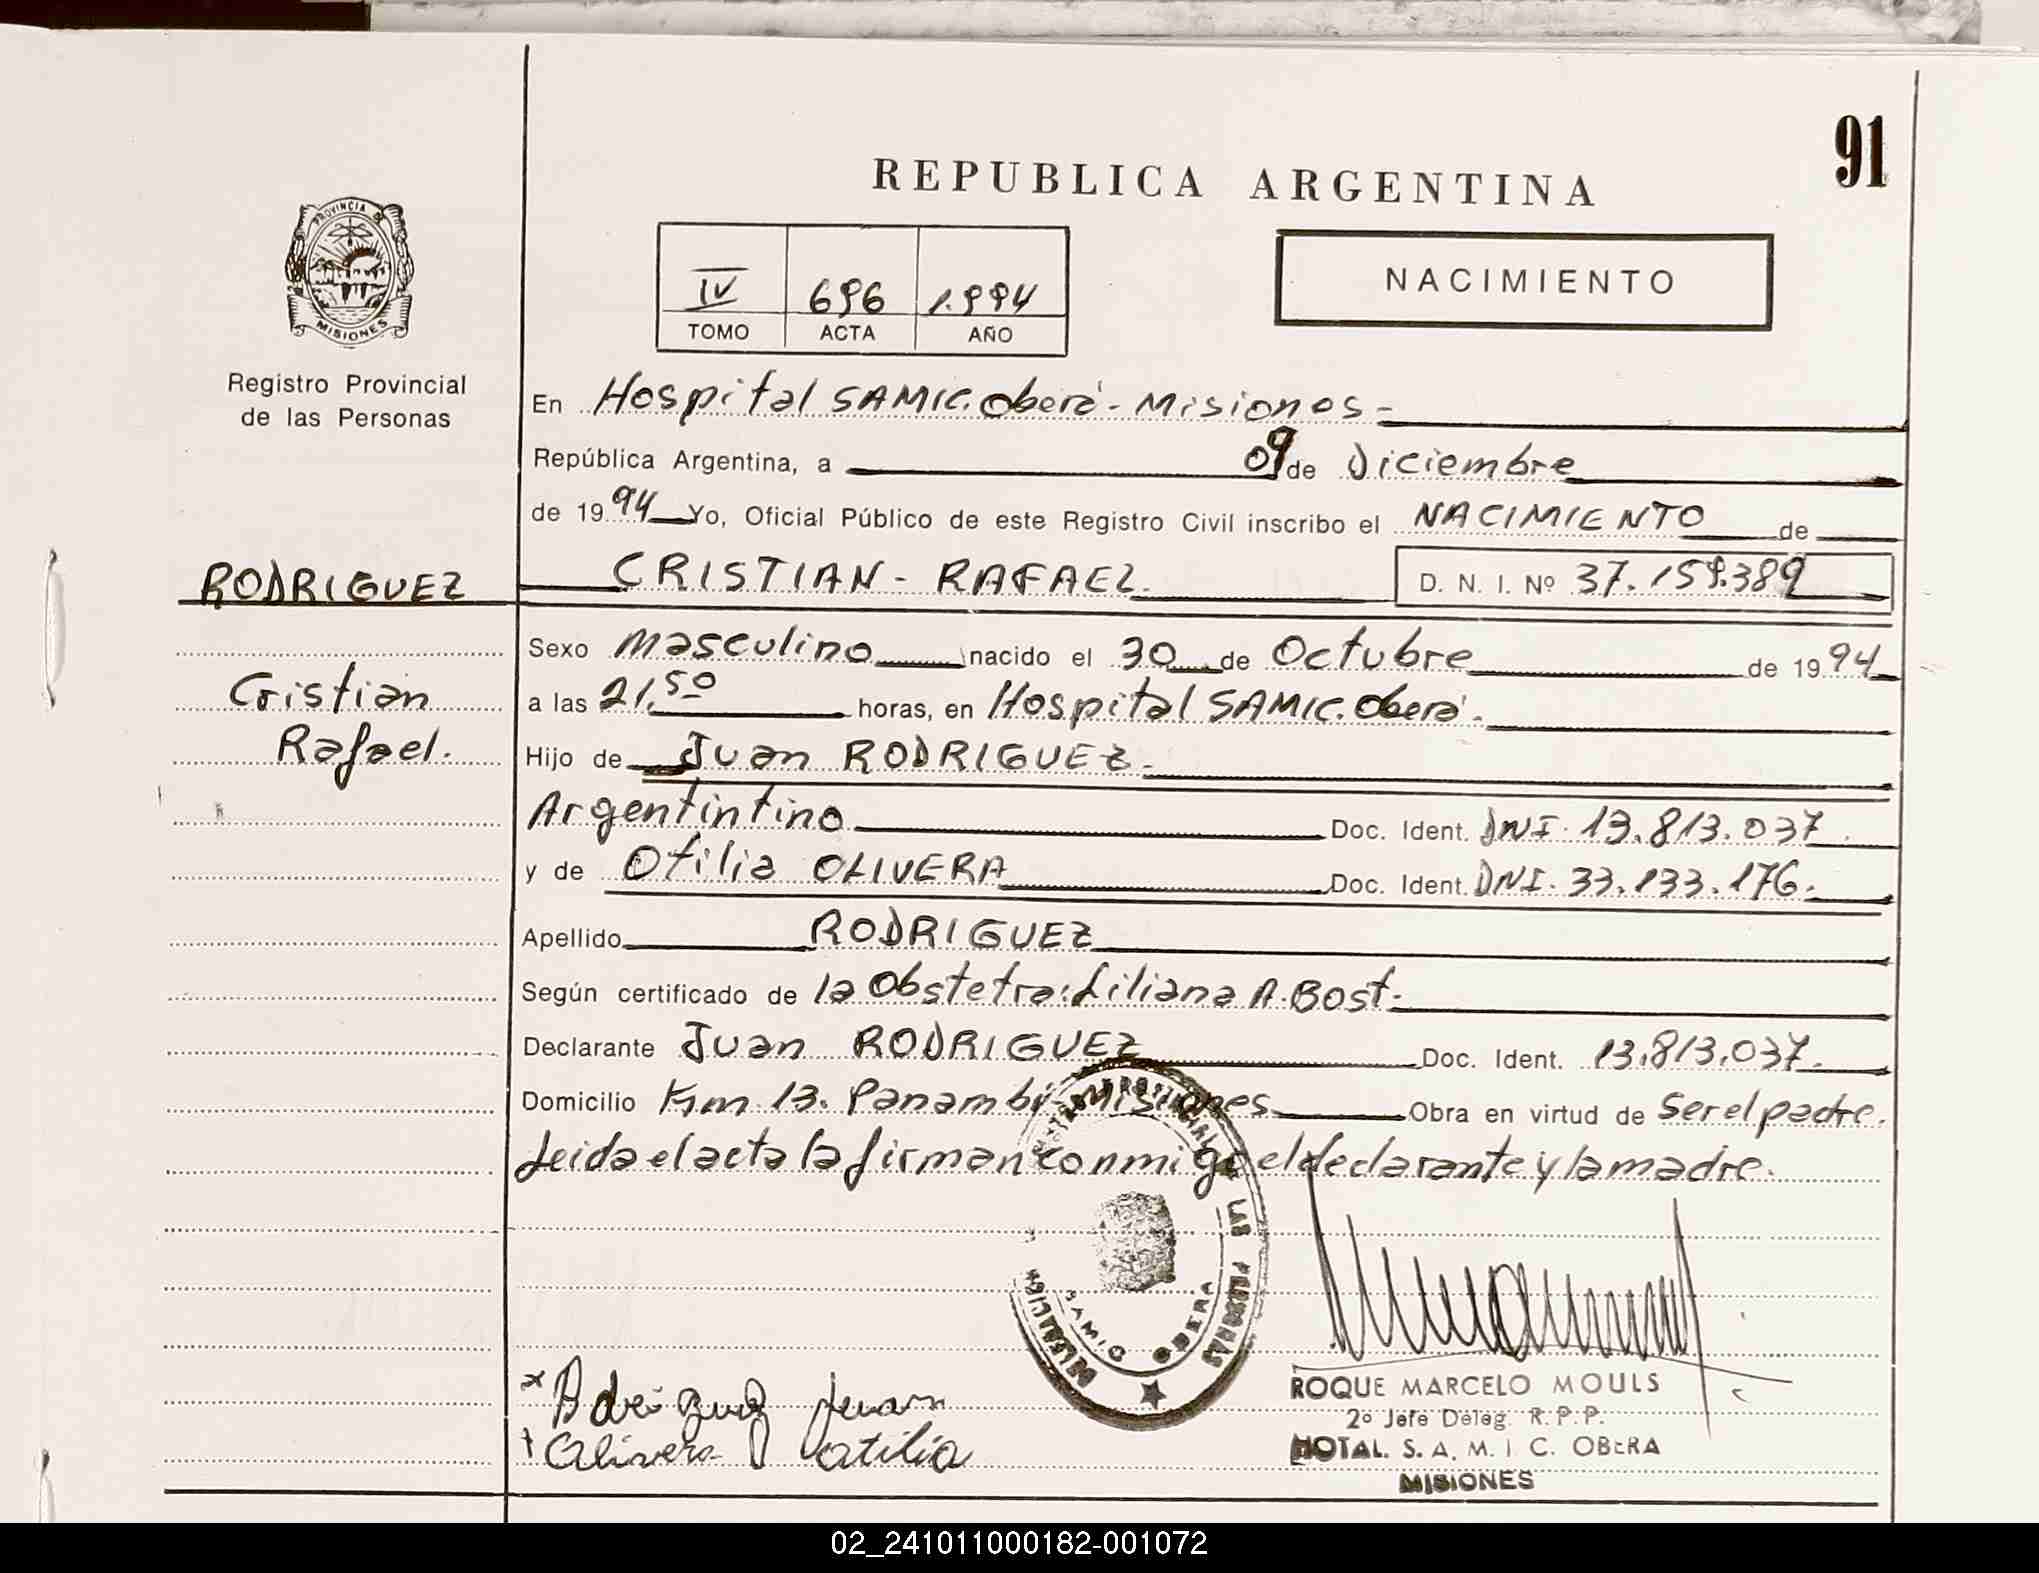 91
REPUBLICA ARGENTINA
PROVINCIA DE
MISIONES
IV 696 1.994
TOMO ACTA AÑO
NACIMIENTO
Registro Provincial
de las Personas
En Hospital SAMIC. Oberá - Misiones -
República Argentina, a 09 de Diciembre
de 1994 Yo, Oficial Público de este Registro Civil inscribo el NACIMIENTO de
RODRIGUEZ
CRISTIAN - RAFAEL. D. N. I. Nº 37.159.389
Cristian
Rafael.
Sexo Masculino nacido el 30 de Octubre de 1994
a las 21,50 horas, en Hospital SAMIC. Oberá.
Hijo de Juan RODRIGUEZ.
Argentintino Doc. Ident. DNI. 13.813.037.
y de Otilia OLIVERA Doc. Ident. DNI. 33.133.176.
Apellido RODRIGUEZ
Según certificado de la Obstetra: Liliana A. Bost.
Declarante Juan RODRIGUEZ Doc. Ident. 13.813.037.
Domicilio Km. 13. Panambí - Misiones Obra en virtud de Ser el padre.
Leida el acta la firman conmigo el declarante y la madre.
DELEGACION
LAS PERSONAS
SAMIC OBERA
Juan
Olivera Otilia
ROQUE MARCELO MOULS
2º Jefe Deleg. R.P.P.
HOTAL. S. A. M. I. C. OBERA
MISIONES
02_241011000182-001072